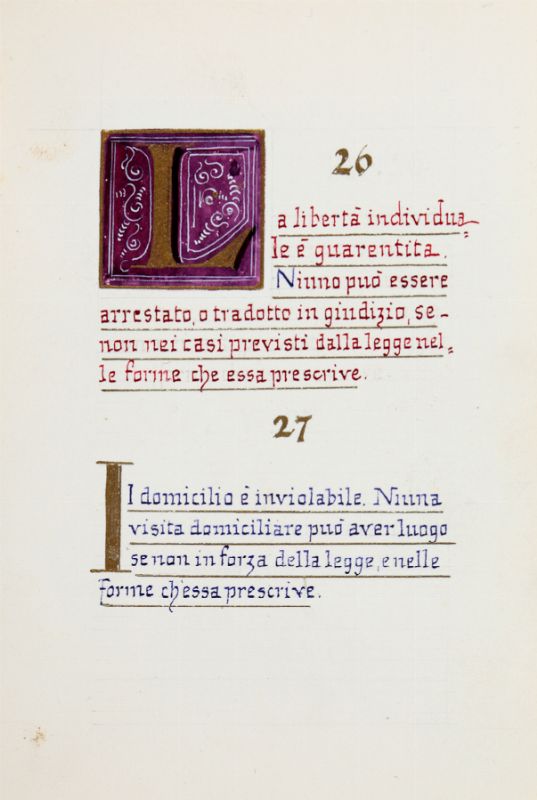 26
La libertà individua-
le è guarentita.
Niuno può essere
arrestato, o tradotto in giudizio, se-
non nei casi previsti dalla legge nel-
le forme che essa prescrive.
27
Il domicilio è inviolabile. Niuna
visita domiciliare può aver luogo
se non in forza della legge, e nelle
forme ch'essa prescrive.